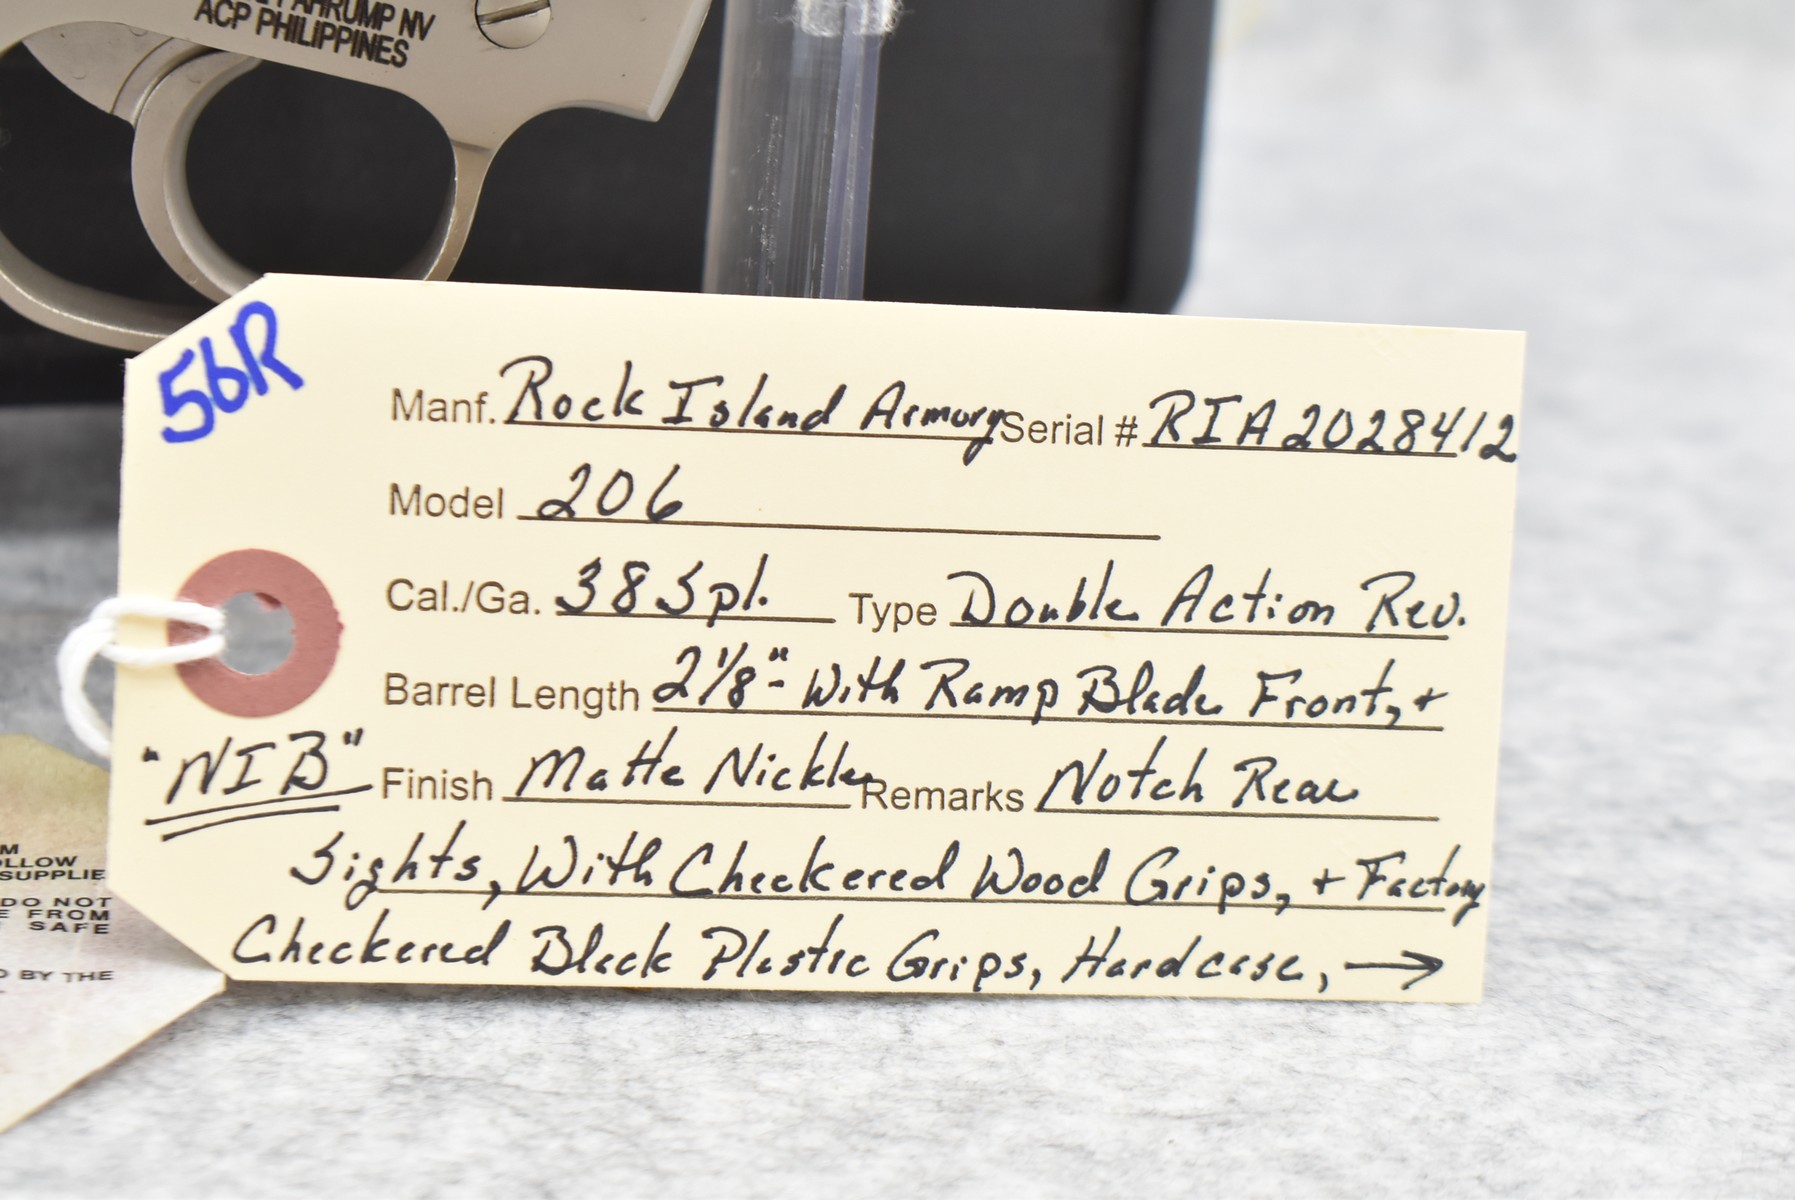 PAHRUMP NV
ACP PHILIPPINES
56R
Manf. Rock Island Armory Serial # RIA2028412
Model 206
Cal./Ga. 38 Spl. Type Double Action Rev.
Barrel Length 2 1/8" - With Ramp Blade Front, +
"NIB" Finish Matte Nickle Remarks Notch Rear
Sights, With Checkered Wood Grips, + Factory
Checkered Black Plastic Grips, Hardcase, →
M
LLOW
SUPPLIE
DO NOT
E FROM
SAFE
D BY THE